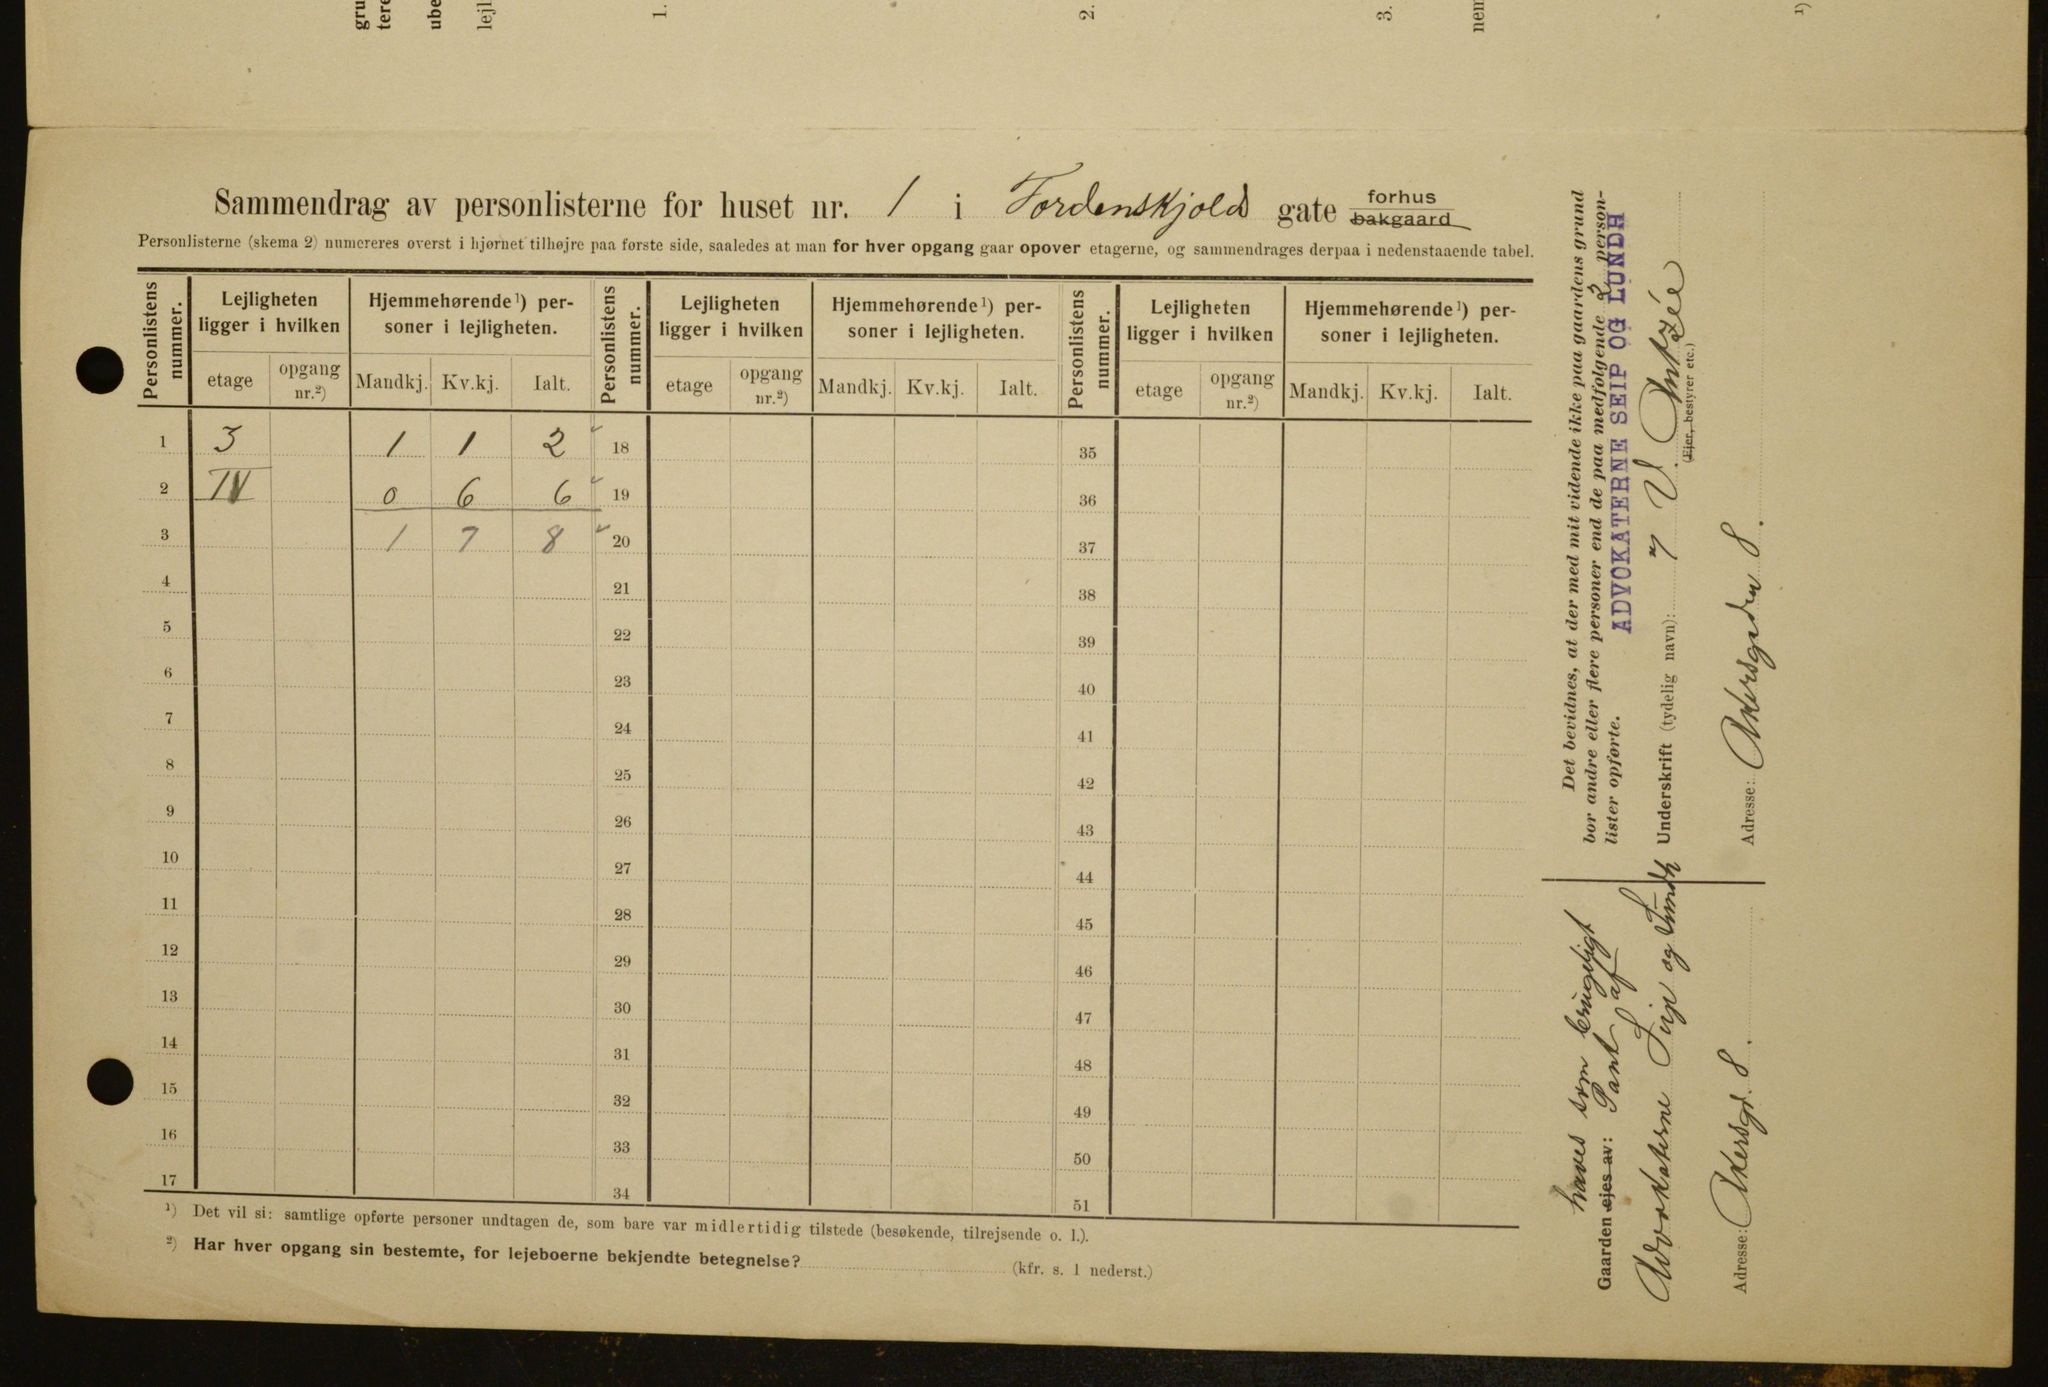 gru
tere
ube
lejl
1.
2.
3.
nem
1)
Sammendrag av personlisterne for huset nr. 1 i Tordenskjolds gate forhus bakgaard
Personlisterne (skema 2) numereres øverst i hjørnet tilhøjre paa første side, saaledes at man for hver opgang gaar opover etagerne, og sammendrages derpaa i nedenstaaende tabel.
Personlistens nummer. Lejligheten ligger i hvilken Hjemmehørende ¹) personer i lejligheten. Personlistens nummer. Lejligheten ligger i hvilken Hjemmehørende ¹) personer i lejligheten. Personlistens nummer. Lejligheten ligger i hvilken Hjemmehørende ¹) personer i lejligheten.
etage opgang nr.²) Mandkj. Kv.kj. Ialt. etage opgang nr.²) Mandkj. Kv.kj. Ialt. etage opgang nr.²) Mandkj. Kv.kj. Ialt.
1 3 1 1 2 18 35
2 IV 0 6 6 19 36
3 1 7 8 20 37
4 21 38
5 22 39
6 23 40
7 24 41
8 25 42
9 26 43
10 27 44
11 28 45
12 29 46
13 30 47
14 31 48
15 32 49
16 33 50
17 34 51
¹) Det vil si: samtlige opførte personer undtagen de, som bare var midlertidig tilstede (besøkende, tilrejsende o. l.).
²) Har hver opgang sin bestemte, for lejeboerne bekjendte betegnelse? (kfr. s. 1 nederst.)
Det bevidnes, at der med mit vidende ikke paa gaardens grund
bor andre eller flere personer end de paa medfølgende 2 person-
lister opførte.
ADVOKATERNE SEIP OG LUNDH
Underskrift (tydelig navn):
(Ejer, bestyrer etc.)
Adresse: Akersgaden 8.
haves som brugeligt
Gaarden ejes av: Pant af
Advokaterne Seip og Lundh
Adresse: Akersgt. 8.